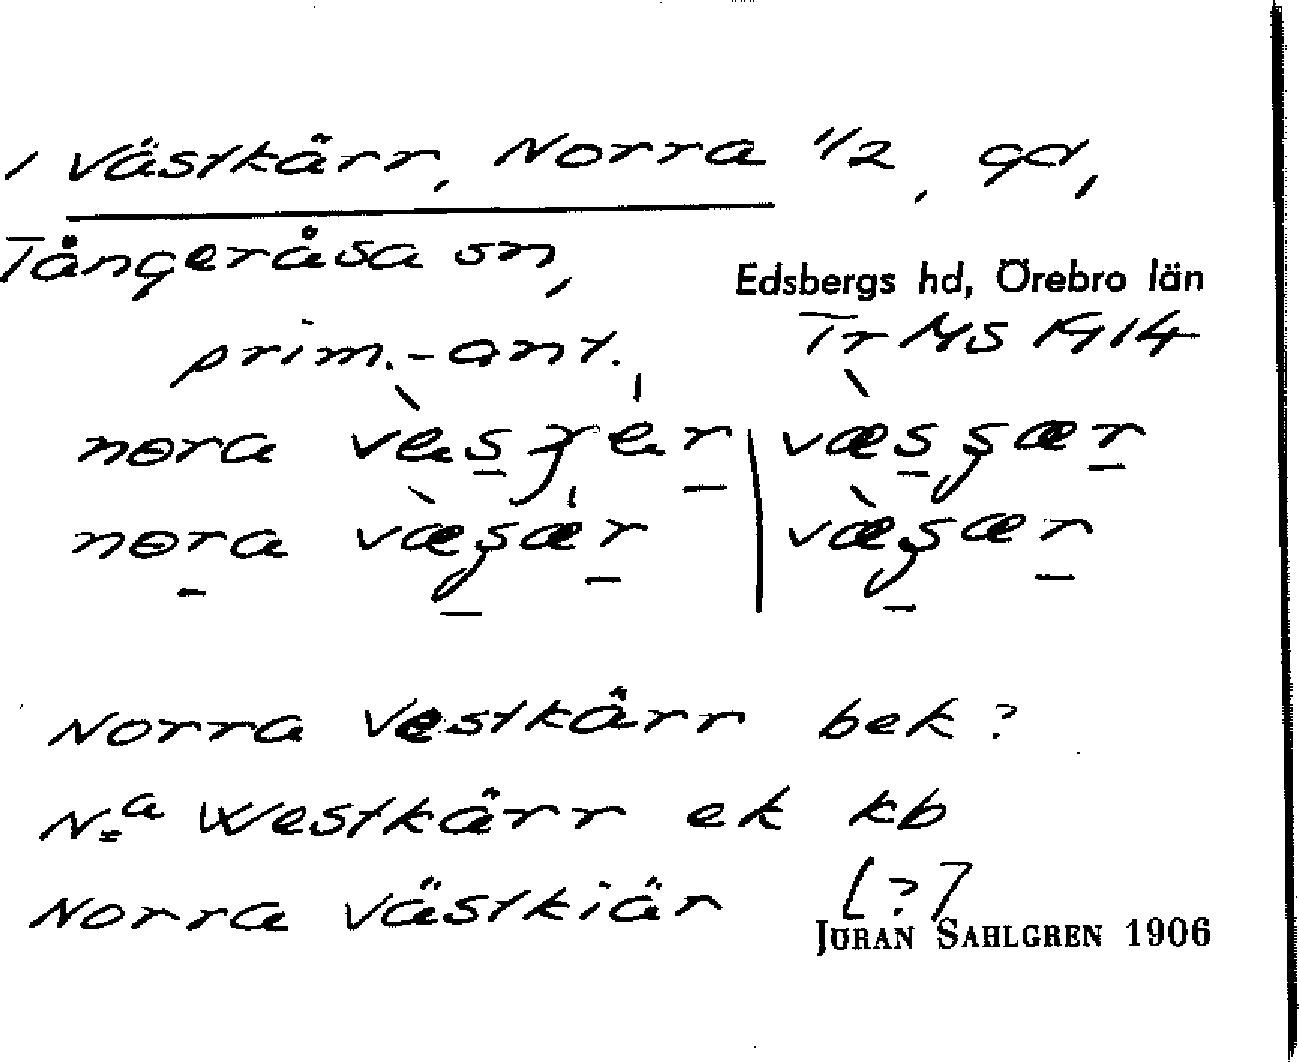 1 Västkärr, Norra 1/2, gd,
Tångeråsa sn,
Edsbergs hd, Örebro län
prim.-ant. Tr MS 1914
nora
nora
Norra Vestkärr bek?
N:a Westkärr ek kb
Norra Västkiär [?]
JÖRAN SAHLGREN 1906